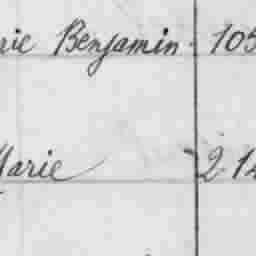 rie Benjamin 105
Marie 2.12